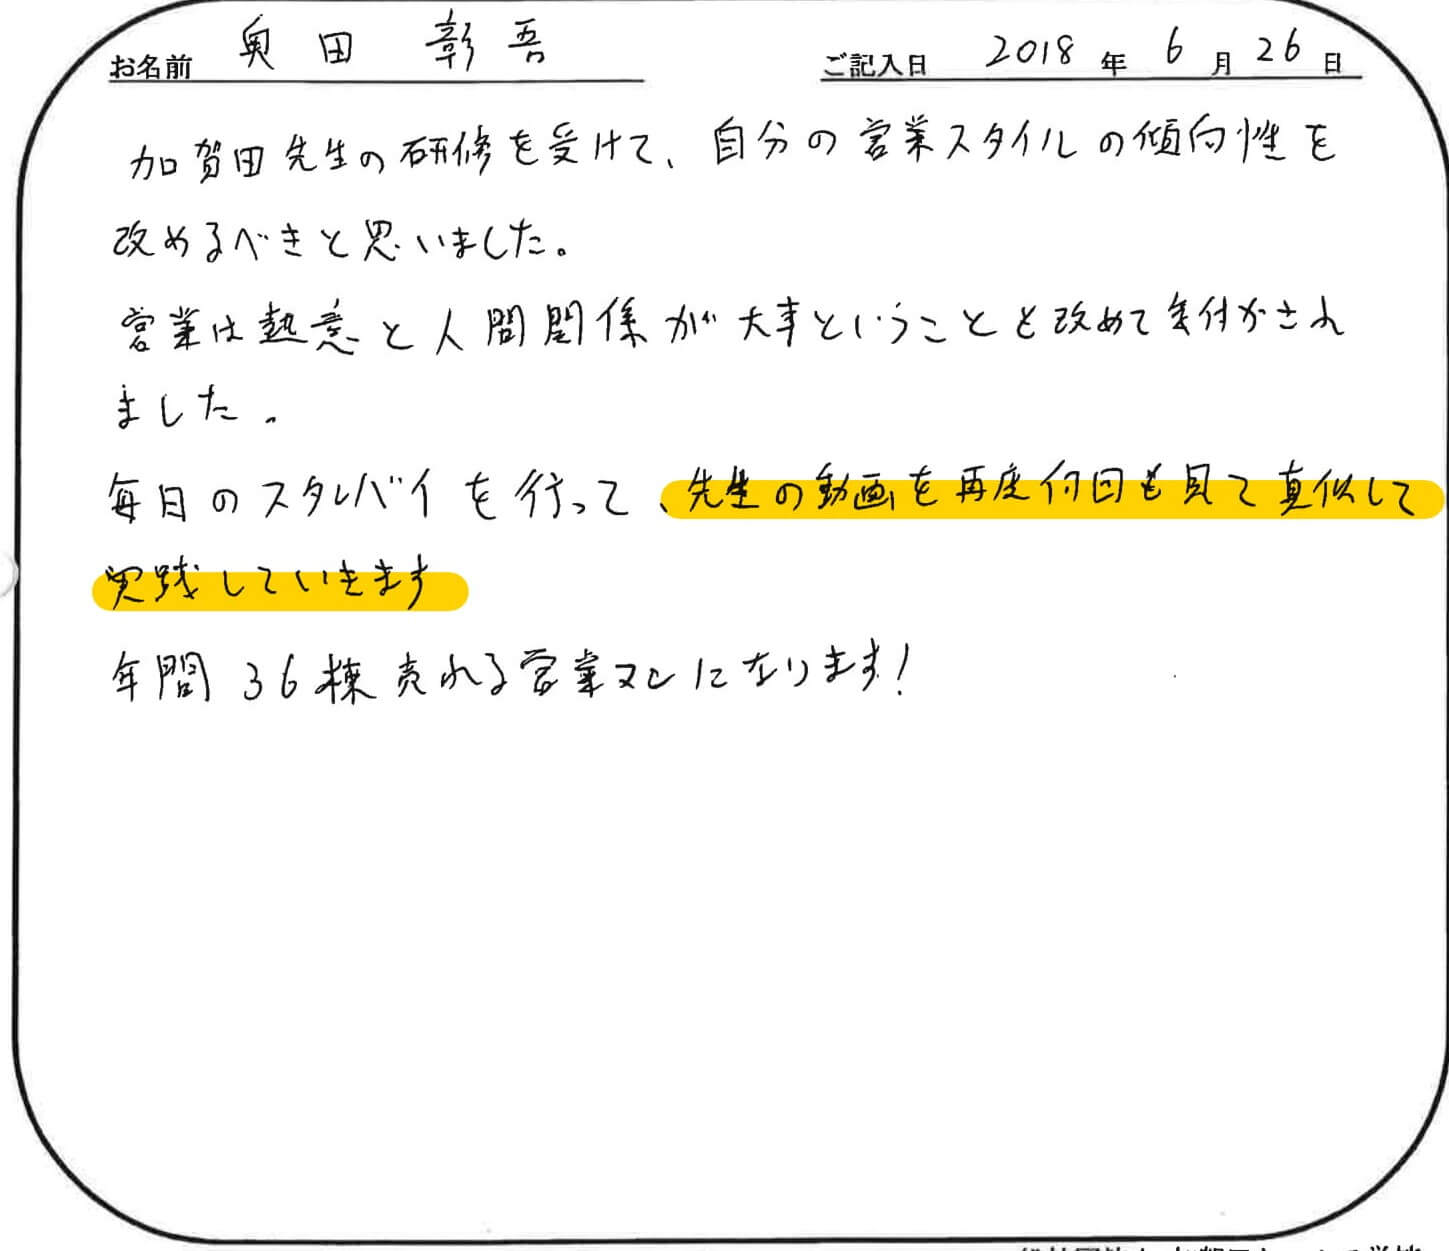 お名前 奥田 彰吾 ご記入日 2018年6月26日
加賀田先生の研修を受けて、自分の営業スタイルの傾向性を
改めるべきと思いました。
営業は熱意と人間関係が大事ということを改めて気付かされ
ました。
毎日のスタンバイを行って、先生の動画を再度何回も見て真似して
実践していきます
年間36棟売れる営業マンになります!